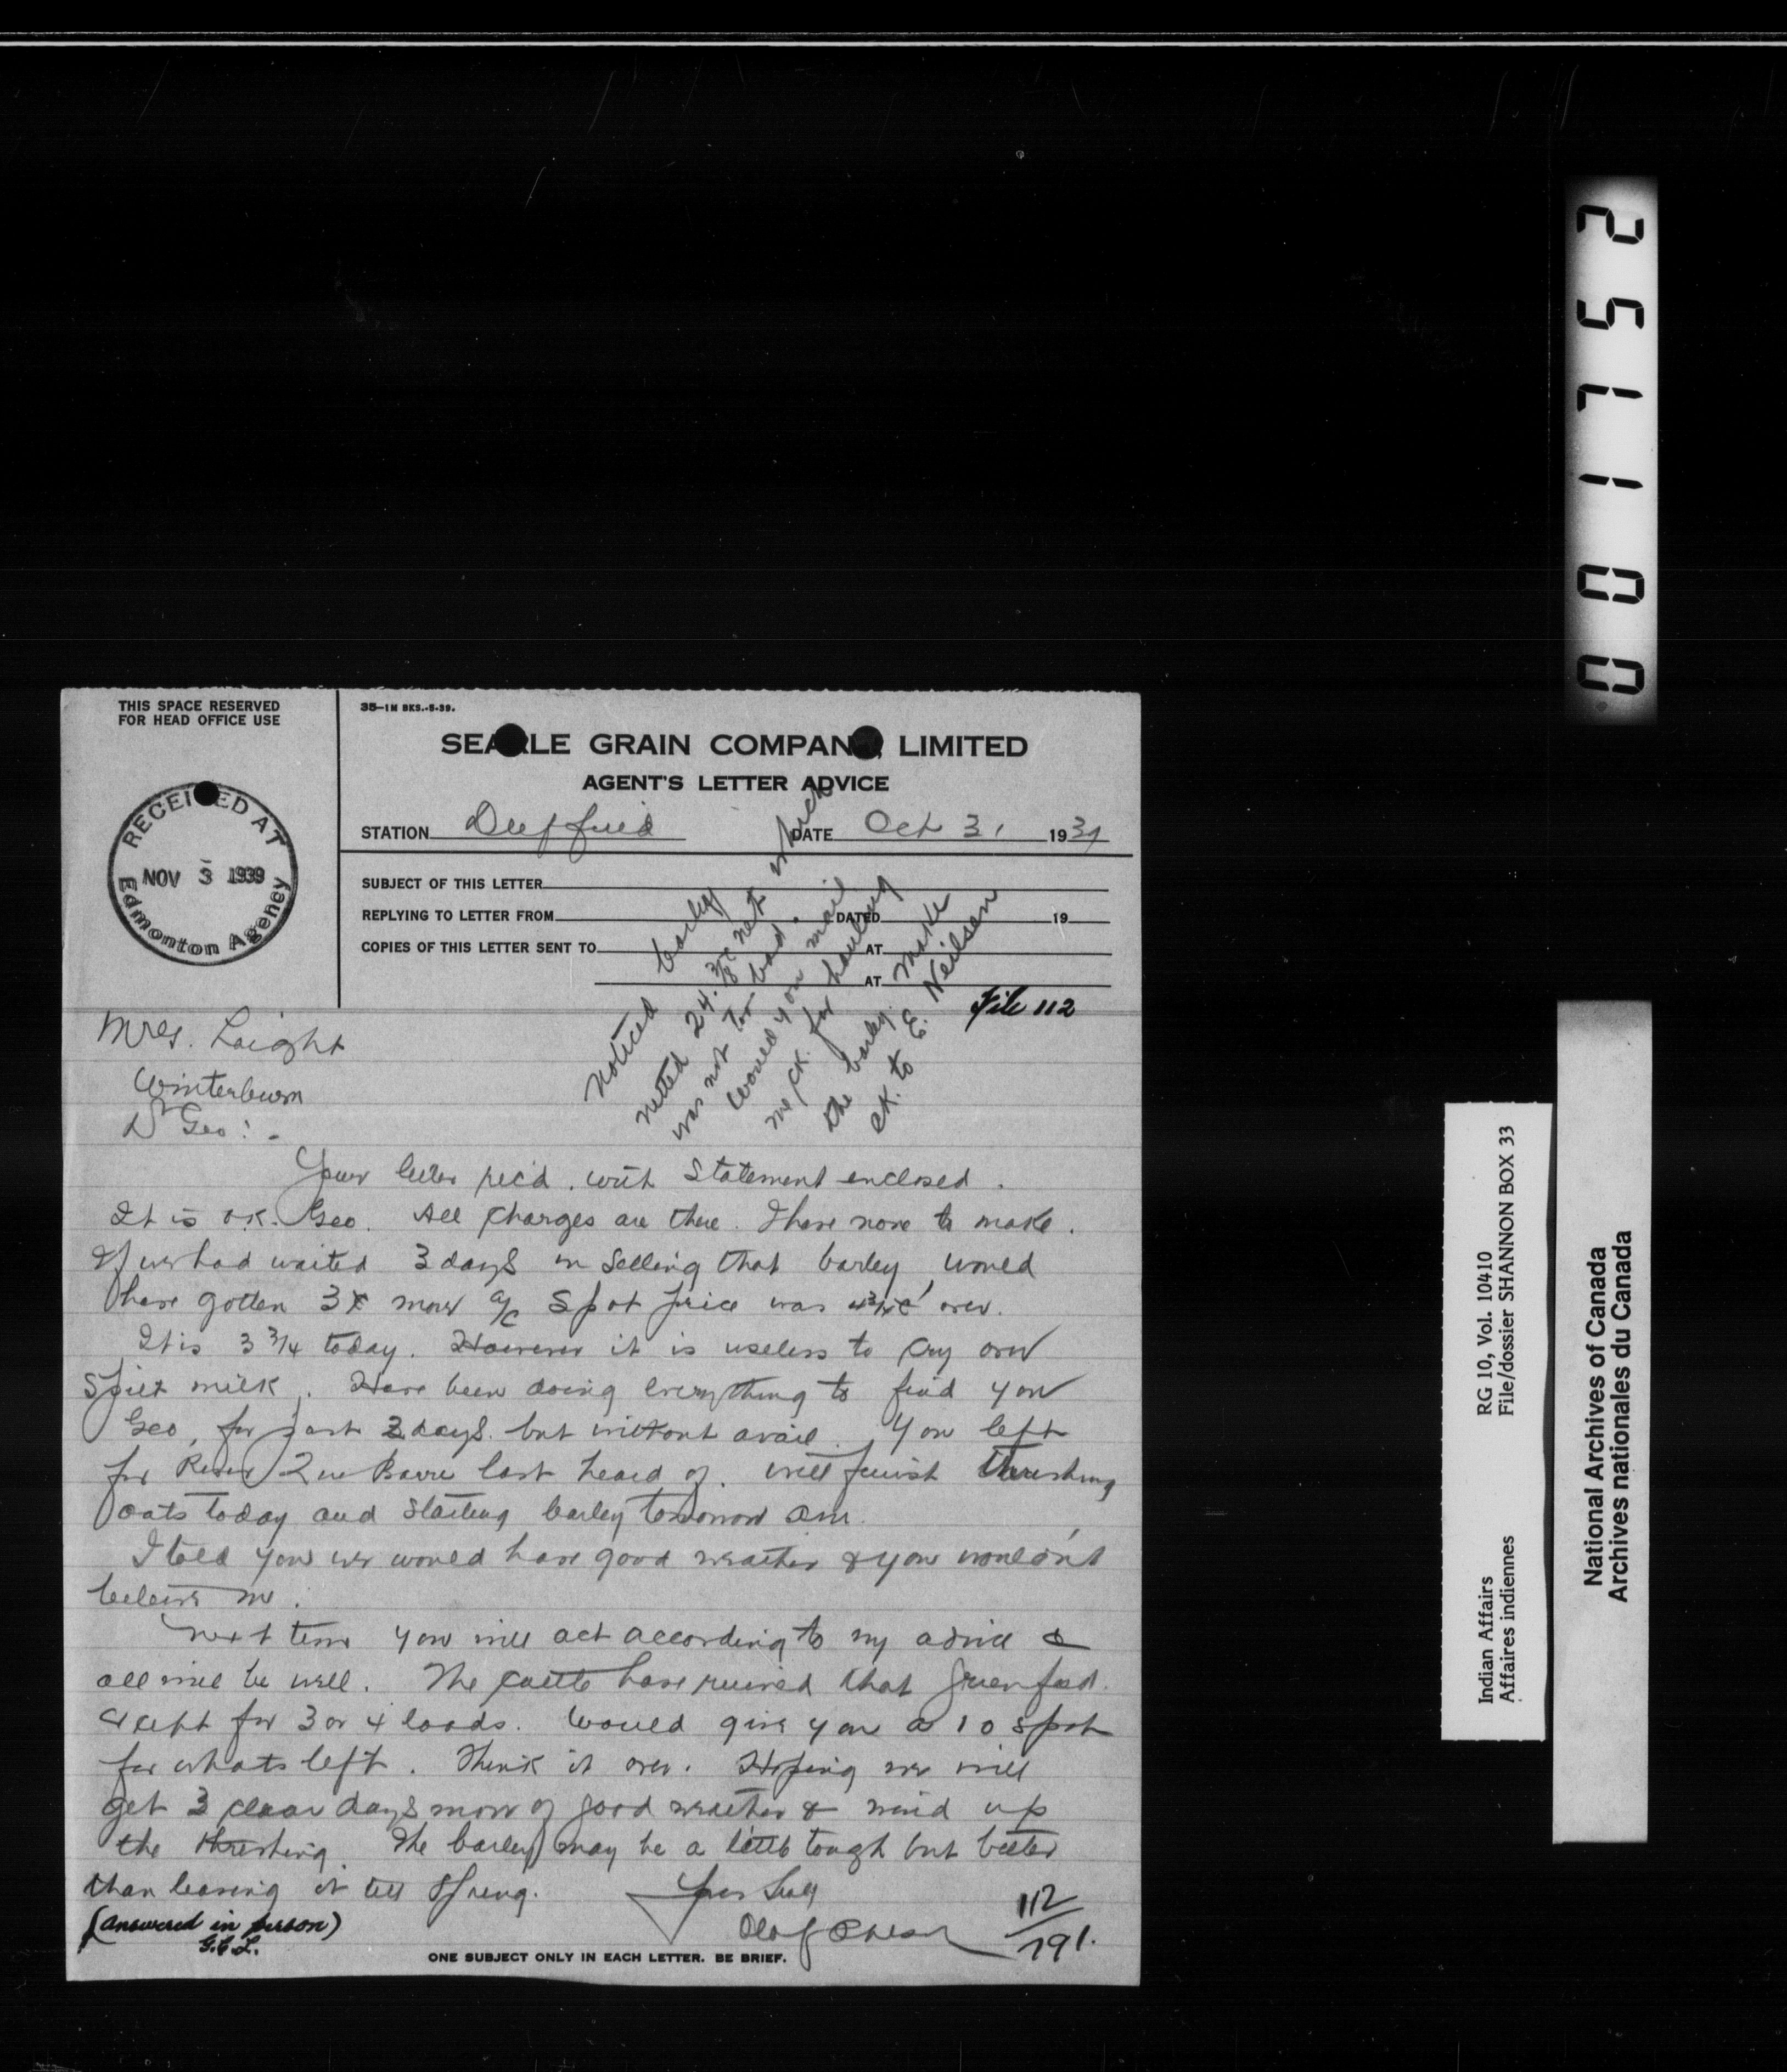 THIS SPACE RESERVED
FOR HEAD OFFICE USE
RECEIVED AT
NOV 3 1939
Edmonton Agency
35-1M BKS.-5-39.
SEARLE GRAIN COMPANY, LIMITED
AGENT'S LETTER ADVICE
STATION
DATE Oct 31 1939
SUBJECT OF THIS LETTER
REPLYING TO LETTER FROM DATED 19
COPIES OF THIS LETTER SENT TO AT
AT
File 112
Noticed barley
netted 24 3/8¢ net which
was not too bad.
Would you mail
me ck. for hauling
the barley. Make
ck. to E. Neilsen
Mrs. Laight
Winterburn
Dr Geo:-
Your letter rec'd. with Statement enclosed.
It is o.k. Geo. All charges are there. I have none to make.
If we had waited 3 days in selling that barley, would
have gotten 3¢ more a/c Spot price was over.
It is 3 3/4 today. However it is useless to cry over
Spilt milk. Have been doing everything to find you
Geo, for past 3 days. but without avail. You left
for River Que Barre last heard of. Will finish threshing
oats today and starting barley tomorrow am.
I told you we would have good weather & you wouldn't
believe me.
Next time you will act according to my advice &
all will be well. The cattle have ruined that greenfeed.
except for 3 or 4 loads. Would give you a 10 spot
for whats left. Think it over. Hoping we will
get 3 clear days more of good weather & wind up
the threshing. The barley may be a little tough but better
than leaving it till Spring. Yours truly
Olaf
(answered in person)
G.C.L.
112
791.
ONE SUBJECT ONLY IN EACH LETTER. BE BRIEF.
001752
Indian Affairs RG 10, Vol. 10410
Affaires indiennes File/dossier SHANNON BOX 33
National Archives of Canada
Archives nationales du Canada